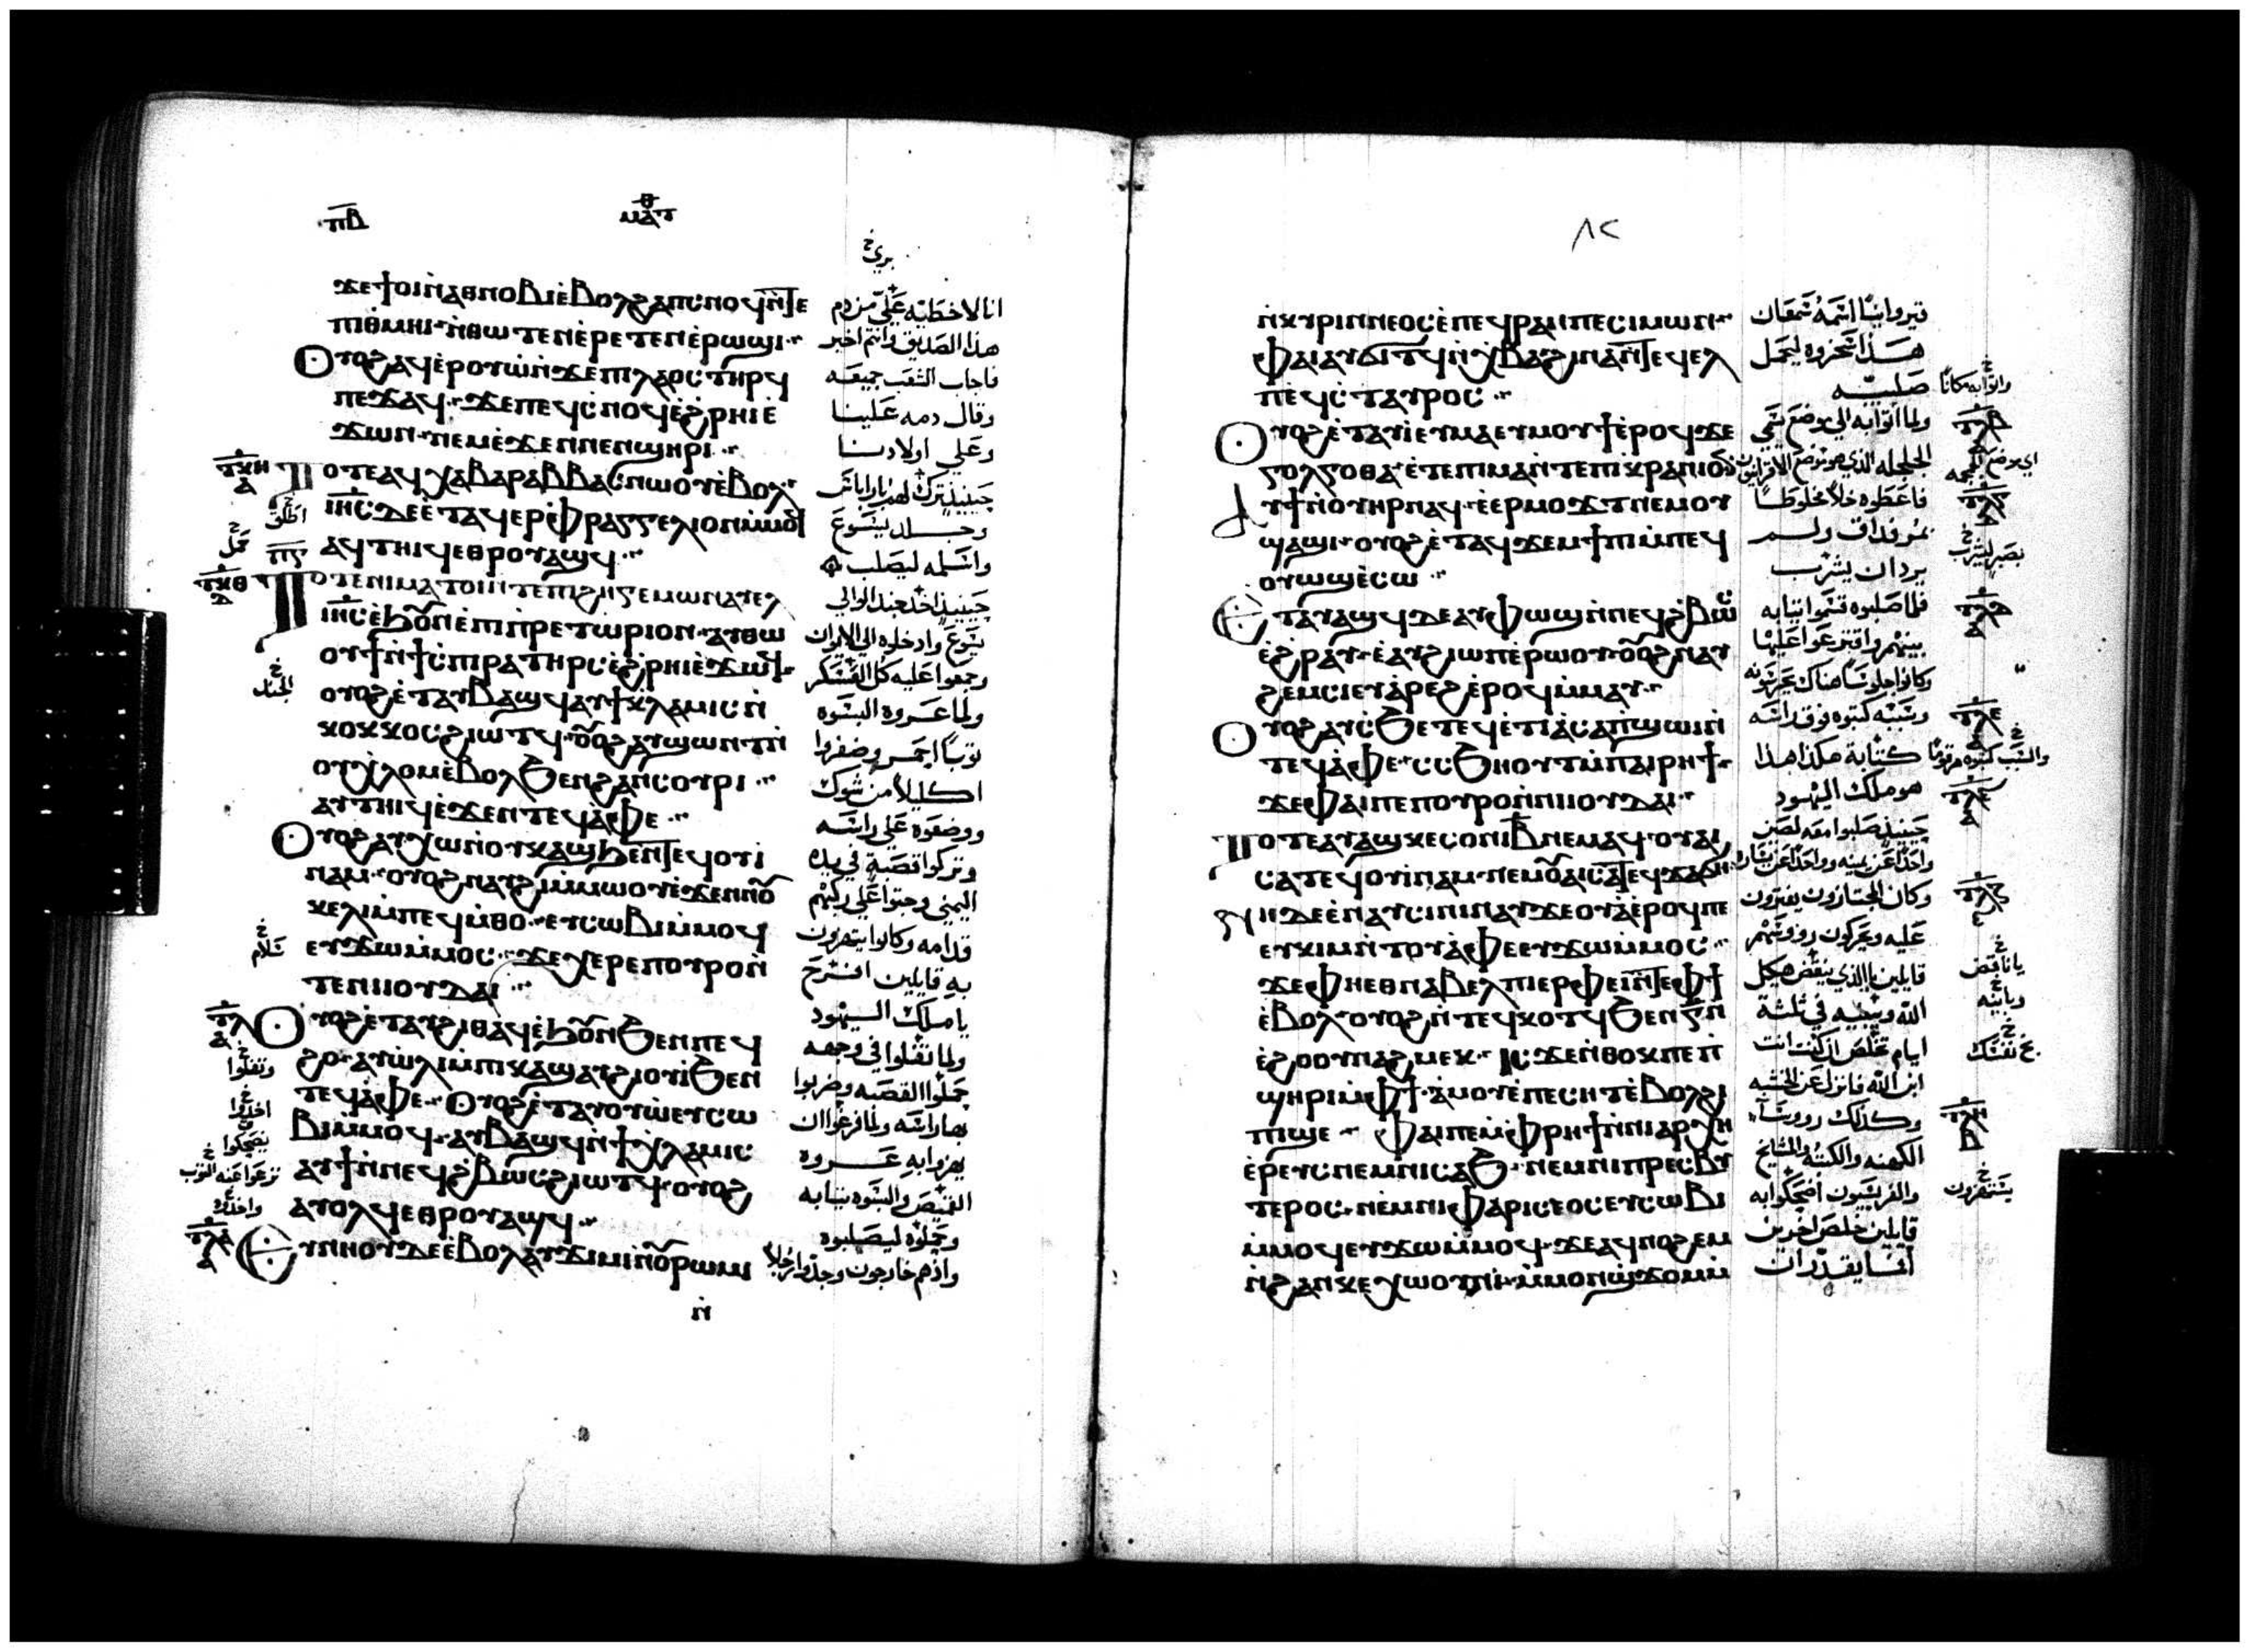 ⲡⲃ
ⲙⲁⲧⲑ
ϫⲉϯⲟⲓⲛ̀ⲁⲑⲛⲟⲃⲓⲉ̀ⲃⲟⲗϩⲁⲡⲥⲛⲟϥⲛ̀ⲧⲉ
ⲡⲓⲑⲙⲏⲓ· ⲛ̀ⲑⲱⲧⲉⲛⲉ̀ⲣⲉⲧⲉⲛⲉ̀ⲣⲱϣⲓ··
Ⲟⲩⲟϩⲁϥⲉ̀ⲣⲟⲩⲱ̀ⲛ̀ϫⲉⲡⲓⲗⲁⲟⲥⲧⲏⲣϥ
ⲡⲉϫⲁϥ·· ϫⲉⲡⲉϥⲥ̀ⲛⲟϥⲉ̀ϩ̀ⲣⲏⲓⲉ̀
ϫⲱⲛ·ⲛⲉⲙⲉ̀ϫⲉⲛⲛⲉⲛϣⲏⲣⲓ··
Ⲧⲟⲧⲉⲁϥⲭⲁⲃⲁⲣⲁⲃⲃⲁⲥⲛⲱⲟⲩⲉ̀ⲃⲟⲗ
ⲓⲏⲥⲇⲉⲉ̀ⲧⲁϥⲉⲣⲫ̀ⲣⲁⲅⲅⲉⲗⲓⲟⲛⲙ̀ⲙⲟϥ
ⲁϥⲧⲏⲓϥⲉⲑⲣⲟⲩⲁϣϥ··
Ⲧⲟⲧⲉⲛⲓⲙⲁⲧⲟⲓⲛ̀ⲧⲉⲡⲓϩⲏⲅⲉⲙⲱⲛⲁⲩⲉⲗ
ⲓⲏⲥⲉ̀ϧⲟⲩⲛⲉ̀ⲡⲓⲡ̀ⲣⲉⲧⲱⲣⲓⲟⲛ·ⲁⲩⲑⲱ
ⲟⲩϯⲛ̀ϯⲥ̀ⲡⲓⲣⲁⲧⲏⲣⲥⲉ̀ϩ̀ⲣⲏⲓⲉ̀ϫⲱϥ·
ⲟⲩⲟϩⲉ̀ⲧⲁⲩⲃⲁϣϥⲁⲩϯⲭ̀ⲗⲁⲙⲓⲥⲛ̀
ⲕⲟⲕⲕⲟⲥϩⲓⲱⲧϥ·ⲟⲩⲟϩⲁⲩϣⲱⲛⲧⲛ̀
ⲟⲩⲭ̀ⲗⲟⲙⲉ̀ⲃⲟⲗϧⲉⲛϩⲁⲛⲥⲟⲩⲣⲓ··
ⲁⲩⲧⲏⲓϥⲉ̀ϫⲉⲛⲧⲉϥⲁ̀ⲫⲉ··
Ⲟⲩⲟϩⲁⲩⲭⲱⲛ̀ⲟⲩⲕⲁϣϧⲉⲛⲧⲉϥⲟⲩⲓ̀
ⲛⲁⲙ··ⲟⲩⲟϩⲛⲁⲩϩⲓⲙ̀ⲙⲱⲟⲩⲉ̀ϫⲉⲛⲛⲟⲩ
ⲕⲉⲗⲓⲙ̀ⲡⲉϥⲙ̀ⲑⲟ··ⲉⲩⲥⲱⲃⲓⲙ̀ⲙⲟϥ
ⲉⲩϫⲱⲙ̀ⲙⲟⲥ··ϫⲉⲭⲉⲣⲉⲡⲟⲩⲣⲟⲛ̀
ⲧⲉⲛⲓⲓⲟⲩⲇⲁⲓ··
Ⲟⲩⲟϩⲉ̀ⲧⲁⲩϩⲓⲑⲁϥⲉ̀ϧⲟⲩⲛϧⲉⲛⲡⲉϥ
ϩⲟ·ⲁⲩⲱ̀ⲗⲓⲙ̀ⲡⲓⲕⲁϣⲁⲩϩⲓⲟⲩⲓ̀ϧⲉⲛ
ⲧⲉϥⲁ̀ⲫⲉ··Ⲟⲩⲟϩⲉ̀ⲧⲁⲩⲟⲩⲱ̀ⲉⲩⲥⲱ
ⲃⲓⲙ̀ⲙⲟϥ·ⲁⲩⲃⲁϣϥⲛ̀ϯⲭ̀ⲗⲁⲙⲓⲥ
ⲁⲩϯⲛ̀ⲛⲉϥϩ̀ⲃⲱⲥϩⲓⲱⲧϥ·ⲟⲩⲟϩ
ⲁⲩⲟⲗϥⲉⲑⲣⲟⲩⲁϣϥ··
Ⲉⲩⲛⲏⲟⲩⲇⲉⲉ̀ⲃⲟⲗⲁⲩϫⲓⲙⲓⲛ̀ⲟⲩⲣⲱⲙⲓ
ⲛ̀
انا لا خطيه علي من دم
هذا الصديق وانتم اخبر
فاجاب الشعب جميعه
وقال دمه علينا
وعلي اولادنا
حينيذ ترك لهم باراباس
وجلد يسوع
واسلمه ليصلب
حينيذ اخد جند الوالي
يسوع وادخلوه الي الايوان
وجمعوا عليه كل العسكر
ولما عروه البسوه
ثوبا احمر وضفروا
اكليلا من شوك
ووضعوه علي راسه
وتركوا قصبة في يده
اليمني وجثوا علي ركبهم
قدامه وكانوا يتهزون
به قايلين افرح
يا ملك اليهود
ولما تفلوا في وجهه
حملوا القصبه وضربوا
بها راسه ولما فرغوا ان
يهزوا به عروه
القميص والبسوه ثيابه
وحملوه ليصلبوه
واذ هم خارجون وجدوا رجلا
٨٢
ⲛ̀ⲕⲩⲣⲓⲛⲛⲉⲟⲥⲉ̀ⲡⲉϥⲣⲁⲛⲡⲉⲥⲓⲙⲱⲛ··
ⲫⲁⲓⲁⲩϭⲓⲧϥⲛ̀ⲭ̀ⲃⲁϩⲓⲛⲁⲛ̀ⲧⲉϥⲉⲗ
ⲡⲉϥⲥ̀ⲧⲁⲩⲣⲟⲥ··
Ⲟⲩⲟϩⲉ̀ⲧⲁⲩⲓ̀ⲉⲩⲙⲁⲉⲩⲙⲟⲩϯⲉ̀ⲣⲟϥϫⲉ
ⲅⲟⲗⲅⲟⲑⲁ·ⲉ̀ⲧⲉⲡⲓⲙⲁⲛ̀ⲧⲉⲡⲓⲕⲣⲁⲛⲓⲟⲛ
Ⲁⲩϯⲛ̀ⲟⲩⲏⲣⲡⲛⲁϥ·ⲉ̀ⲉⲣⲙⲟϫⲧⲛⲉⲙⲟⲩ
ϣⲁϣⲓ·ⲟⲩⲟϩⲉ̀ⲧⲁϥϫⲉⲙϯⲡⲓⲙ̀ⲡⲉϥ
ⲟⲩⲱϣⲉ̀ⲥⲱ··
Ⲉⲧⲁⲩⲁϣϥⲇⲉⲁⲩⲫⲱϣⲛ̀ⲛⲉϥϩ̀ⲃⲱⲥ
ⲉ̀ϩ̀ⲣⲁⲩ·ⲉ̀ⲁⲩϩⲓⲱⲡⲉ̀ⲣⲱⲟⲩ·ⲟⲩⲟϩⲛⲁⲩ
ϩⲉⲙⲥⲓⲉⲩⲁ̀ⲣⲉϩⲉ̀ⲣⲟϥⲙ̀ⲙⲁⲩ··
Ⲟⲩⲟϩⲁⲩⲥ̀ϧⲉⲧⲉϥⲉ̀ⲧⲓⲁ̀ⲥⲁⲡ̀ϣⲱⲓⲛ̀
ⲧⲉϥⲁ̀ⲫⲉ·ⲥⲥ̀ϧⲏⲟⲩⲧⲙ̀ⲡⲁⲓⲣⲏϯ·
ϫⲉⲫⲁⲓⲡⲉⲡⲟⲩⲣⲟⲛ̀ⲛⲓⲓⲟⲩⲇⲁⲓ··
Ⲧⲟⲧⲉⲁⲩⲁϣⲕⲉⲥⲟⲛⲓⲃ̅ⲛⲉⲙⲁϥ·ⲟⲩⲁⲓ
ⲥⲁⲧⲉϥⲟⲩⲓ̀ⲛⲁⲙ·ⲛⲉⲙⲟⲩⲁⲓⲥⲁⲧⲉϥϫⲁϭⲏ
ⲛⲏⲇⲉⲉ̀ⲛⲁⲩⲥⲓⲛⲓⲛⲁⲩϫⲉⲟⲩⲁ̀ⲉ̀ⲣⲟϥⲡⲉ
ⲉⲩⲕⲓⲙⲛ̀ⲧⲟⲩⲁ̀ⲫⲉⲉⲩϫⲱⲙ̀ⲙⲟⲥ··
ϫⲉⲫⲏⲉⲑⲛⲁⲃⲉⲗⲡⲓⲉⲣⲫⲉⲓⲛ̀ⲧⲉⲫϯ
ⲉ̀ⲃⲟⲗ·ⲟⲩⲟϩⲛ̀ⲧⲉϥⲕⲟⲧϥϧⲉⲛⲅ̅ⲛ̀
ⲉ̀ϩⲟⲟⲩⲛⲁϩⲙⲉⲕ··ⲓⲥϫⲉⲛ̀ⲑⲟⲕⲡⲉⲡ̀
ϣⲏⲣⲓⲙ̀ⲫϯ·ⲁ̀ⲙⲟⲩⲉ̀ⲡⲉⲥⲏⲧⲉ̀ⲃⲟⲗϩⲓ
ⲡⲓϣⲉ·· ⲫⲁⲓⲡⲉⲙ̀ⲫⲣⲏϯⲛ̀ⲛⲓⲁⲣⲭⲏ
ⲉ̀ⲣⲉⲩⲥⲛⲉⲙⲛⲓⲥⲁϧ·ⲛⲉⲙⲛⲓⲡⲣⲉⲥⲃⲩ
ⲧⲉⲣⲟⲥ·ⲛⲉⲙⲛⲓⲫⲁⲣⲓⲥⲉⲟⲥⲉⲩⲥⲱⲃⲓ
ⲙ̀ⲙⲟϥⲉⲩϫⲱⲙ̀ⲙⲟϥ·ϫⲉⲁϥⲛⲟϩⲉⲙ
ⲛ̀ϩⲁⲛⲕⲉⲭⲱⲟⲩⲛⲓ·ⲙ̀ⲙⲟⲛϣ̀ϫⲟⲙⲙ̀
قيروانيا اسمه سمعان
هذا سخروه ليحمل
صليبه
ولما اتوا به الي موضع يسمي
الجلجله الذي هو موضع الاقرانيون
فاعطوه خلا مخلوطا
بمر فذاق ولم
يرد ان يشرب
فلما صلبوه قسموا ثيابه
بينهم واقترعوا عليها
وكانوا جلوسا هناك يحرسونه
وسببه كتبوه فوق راسه
كتابة هكذا هذا
هو ملك اليهود
حينيذ صلبوا معه لصين
واحدا عن يمينه وواحدا عن يساره
وكان المجتازون يفترون
عليه ويحركون رووسهم
قايلين يا الذي ينقض هيكل
الله ويبنيه في ثلثة
ايام تخلص ان كنت انت
ابن الله فانزل عن الخشبه
وكذلك رووسا
الكهنه والكتبه والمشايخ
والفريسيون اضحكوا به
قايلين خلص اخرين
افما يقدر ان